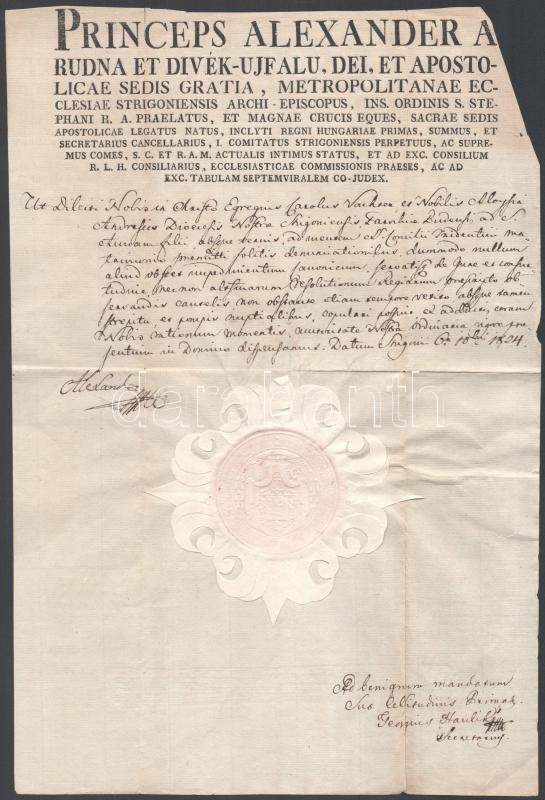 PRINCEPS ALEXANDER A
RUDNA ET DIVÉK-UJFALU, DEI, ET APOSTO-
LICAE SEDIS GRATIA, METROPOLITANAE EC-
CLESIAE STRIGONIENSIS ARCHI-EPISCOPUS, INS. ORDINIS S. STE-
PHANI R. A. PRAELATUS, ET MAGNAE CRUCIS EQUES, SACRAE SEDIS
APOSTOLICAE LEGATUS NATUS, INCLYTI REGNI HUNGARIAE PRIMAS, SUMMUS, ET
SECRETARIUS CANCELLARIUS, I. COMITATUS STRIGONIENSIS PERPETUUS, AC SUPRE-
MUS COMES, S. C. ET R. A. M. ACTUALIS INTIMUS STATUS, ET AD EXC. CONSILIUM
R. L. H. CONSILIARIUS, ECCLESIASTICAE COMMISSIONIS PRAESES, AC AD
EXC. TABULAM SEPTEMVIRALEM CO-JUDEX.
Ut Dilecti Nobis in Christo Egregius Carolus et Nobilis Aloysia
Dioecesis Nostrae Strigoniensis, Parochiae Budensis ad S.
filii, absque ternis, ad mentem Concilii Tridentini ma-
trimonio praemitti solitis denunciationibus, dummodo nullum
aliud obstet impedimentum canonicum, servatis de Jure et consve-
tudine, necnon altissimarum Resolutionum Regiarum praescripto ob-
servandis cautelis non obstante etiam tempore vetito absque tamen
strepitu et pompis nuptialibus, copulari possint ex adductis, coram
Nobis rationum momentis, autoritate Nostra ordinaria vigore prae-
sentium in Domino dispensamus. Datum Strigonii 6a 10bris 1824.
Alexander
darabanth
Ad benignum mandatum
Suae Celsitudinis Primat.
Georgius Haulik
Secretarius